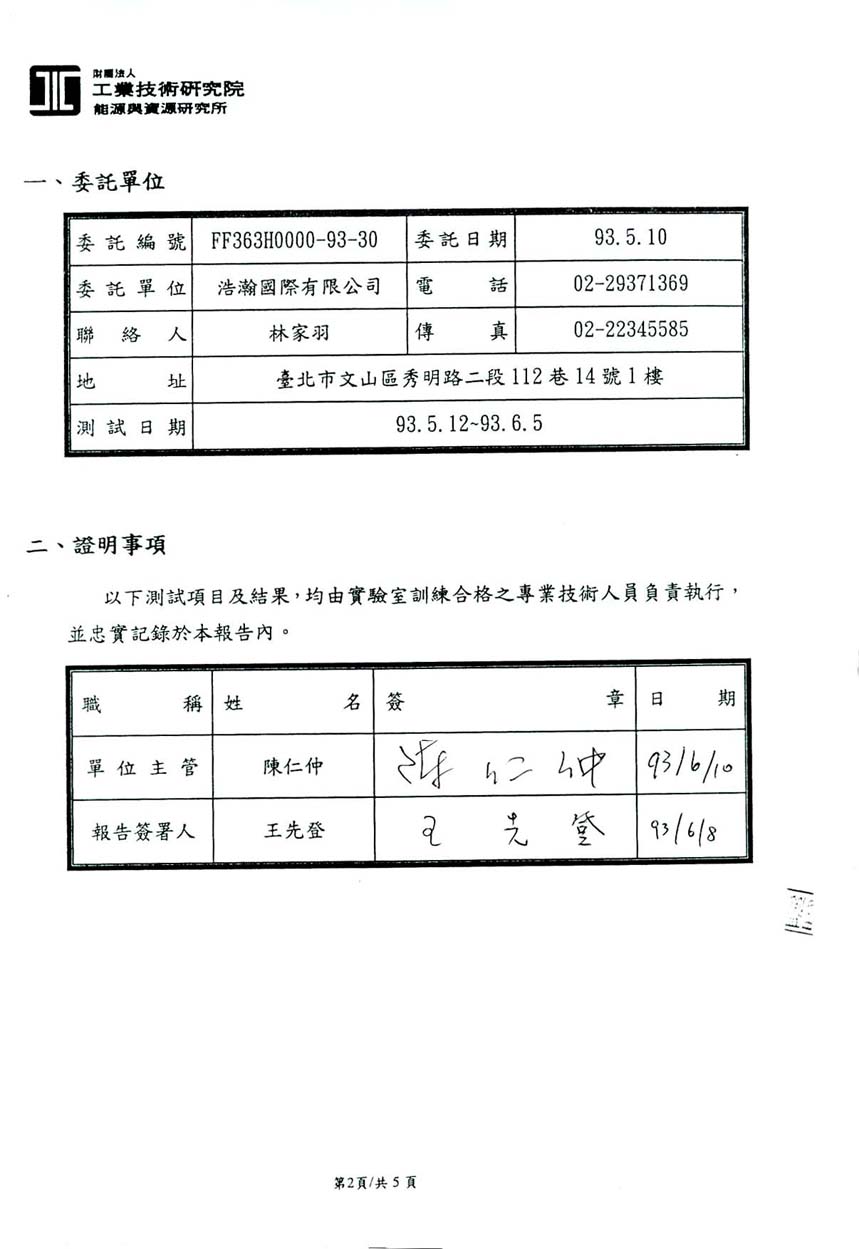 財團法人
工業技術研究院
能源與資源研究所
一、委託單位
委託編號 FF363H0000-93-30 委託日期 93.5.10
委託單位 浩瀚國際有限公司 電話 02-29371369
聯絡人 林家羽 傳真 02-22345585
地址 臺北市文山區秀明路二段112巷14號1樓
測試日期 93.5.12~93.6.5
二、證明事項
以下測試項目及結果，均由實驗室訓練合格之專業技術人員負責執行，
並忠實記錄於本報告內。
職稱 姓名 簽章 日期
單位主管 陳仁仲 陳仁仲 93/6/10
報告簽署人 王先登 王先登 93/6/8
第2頁/共5頁